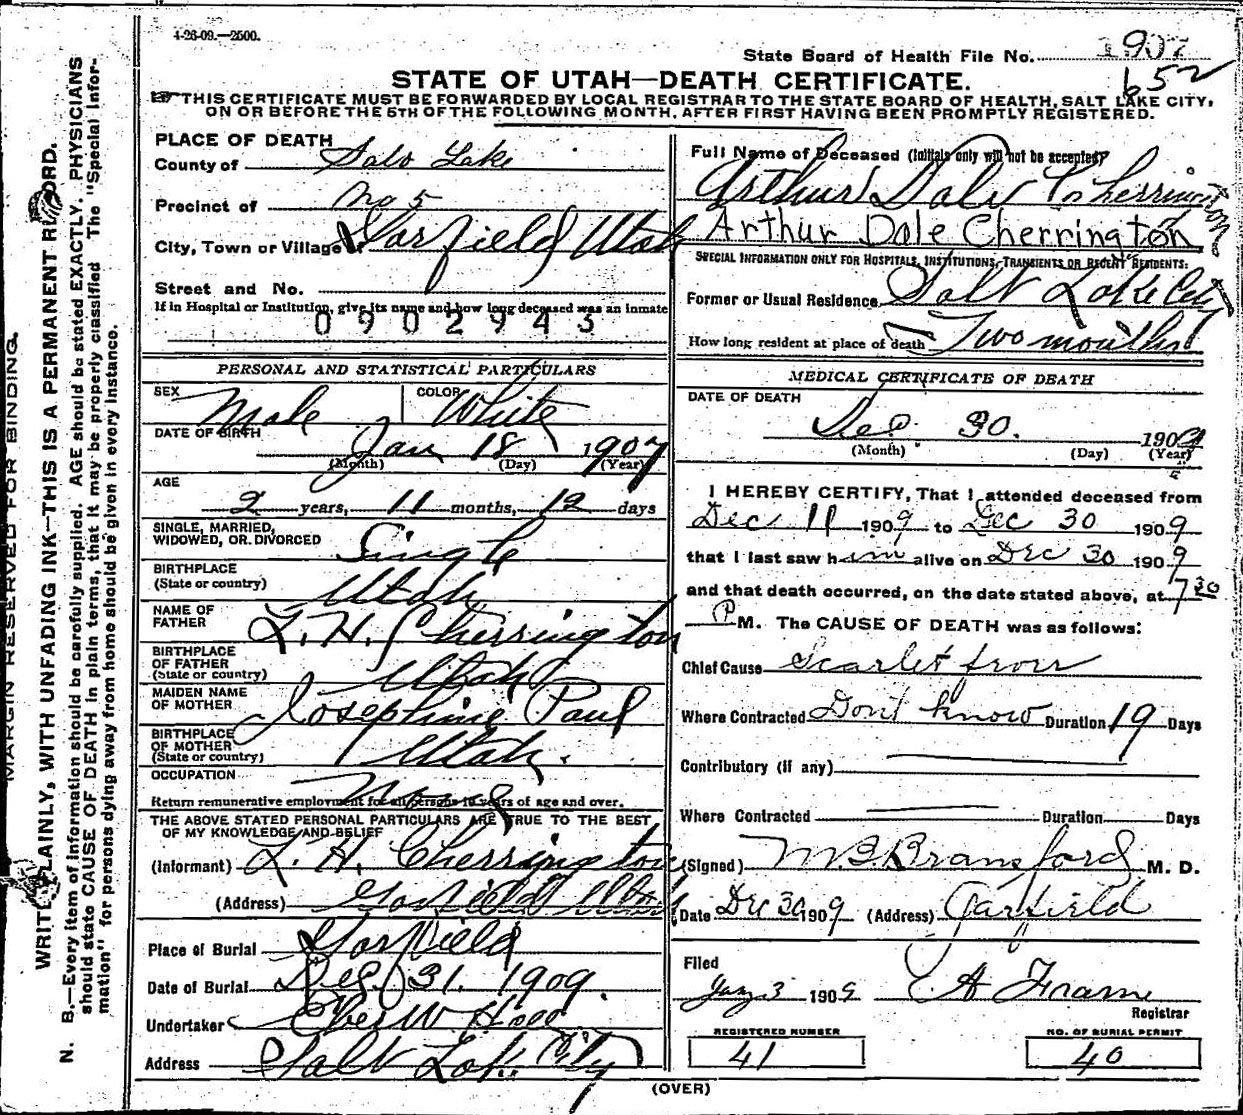 4-26-09.—2500.
State Board of Health File No. 1907
652
STATE OF UTAH—DEATH CERTIFICATE.
THIS CERTIFICATE MUST BE FORWARDED BY LOCAL REGISTRAR TO THE STATE BOARD OF HEALTH, SALT LAKE CITY,
ON OR BEFORE THE 5TH OF THE FOLLOWING MONTH, AFTER FIRST HAVING BEEN PROMPTLY REGISTERED.
MARGIN RESERVED FOR BINDING.
WRITE PLAINLY, WITH UNFADING INK—THIS IS A PERMANENT RECORD.
N. B.—Every item of information should be carefully supplied. AGE should be stated EXACTLY. PHYSICIANS
should state CAUSE OF DEATH in plain terms, that it may be properly classified The "Special Infor-
mation" for persons dying away from home should be given in every instance.
PLACE OF DEATH
County of Salt Lake
Precinct of No 5
City, Town or Village of Garfield Utah
Street and No.
If in Hospital or Institution, give its name and how long deceased was an inmate
0902943
PERSONAL AND STATISTICAL PARTICULARS
SEX Male COLOR White
DATE OF BIRTH
Jan 18 1907
(Month) (Day) (Year)
AGE
2 years, 11 months, 12 days
SINGLE, MARRIED,
WIDOWED, OR DIVORCED Single
BIRTHPLACE
(State or country) Utah
NAME OF
FATHER L. H. Cherrington
BIRTHPLACE
OF FATHER
(State or country) Utah
MAIDEN NAME
OF MOTHER Josephine Paul
BIRTHPLACE
OF MOTHER
(State or country) Utah.
OCCUPATION None
Return remunerative employment for all persons 10 years of age and over.
THE ABOVE STATED PERSONAL PARTICULARS ARE TRUE TO THE BEST
OF MY KNOWLEDGE AND BELIEF
(Informant) L. H. Cherrington
(Address) Garfield Utah
Place of Burial Garfield
Date of Burial Dec. 31. 1909.
Undertaker Eber W Hall
Address Salt Lake City
Full Name of Deceased (Initials only will not be accepted)
Arthur Dale Cherrington
Arthur Dale Cherrington
SPECIAL INFORMATION ONLY FOR HOSPITALS, INSTITUTIONS, TRANSIENTS OR RECENT RESIDENTS:
Former or Usual Residence Salt Lake City
How long resident at place of death Two months
MEDICAL CERTIFICATE OF DEATH
DATE OF DEATH
Dec. 30. 1909
(Month) (Day) (Year)
I HEREBY CERTIFY, That I attended deceased from
Dec 11 1909 to Dec 30 1909
that I last saw him alive on Dec 30 1909
and that death occurred, on the date stated above, at 7 30
P M. The CAUSE OF DEATH was as follows:
Chief Cause Scarlet fever
Where Contracted Don't know Duration 19 Days
Contributory (if any)
Where Contracted Duration Days
(Signed) M. B. Bransford M. D.
Date Dec 30 1909 (Address) Garfield
Filed
Jany 3 1909 A Frame
Registrar
REGISTERED NUMBER NO. OF BURIAL PERMIT
41 40
(OVER)